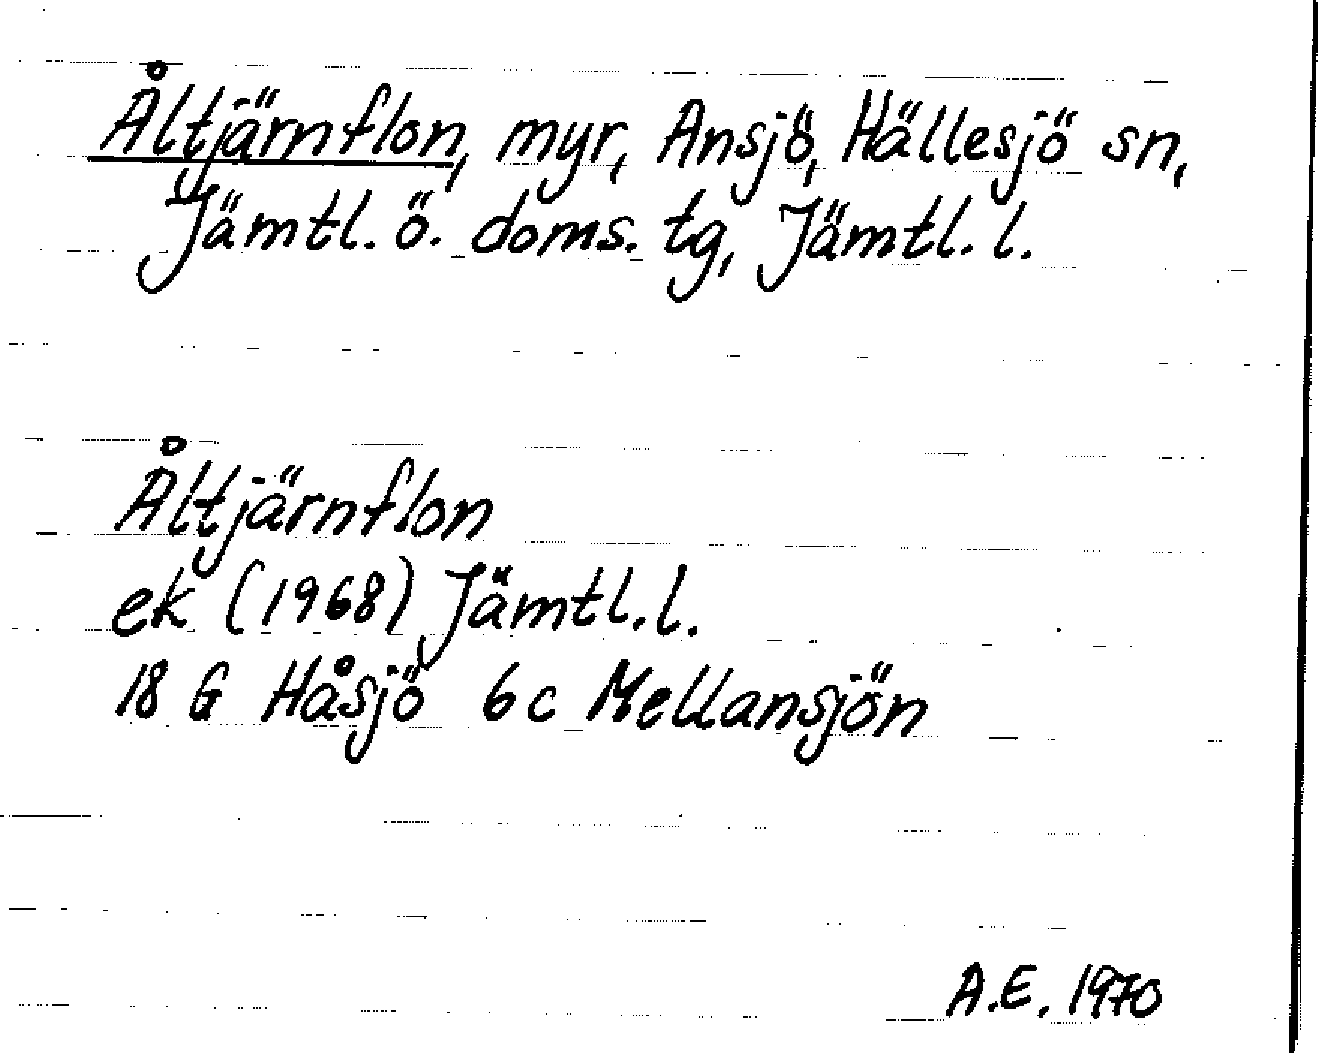 Åltjärnflon, myr, Ansjö, Hällesjö sn,
Jämtl. ö. doms. tg, Jämtl. l.
Åltjärnflon
ek (1968) Jämtl. l.
18 G Håsjö 6c Mellansjön
A.E. 1970